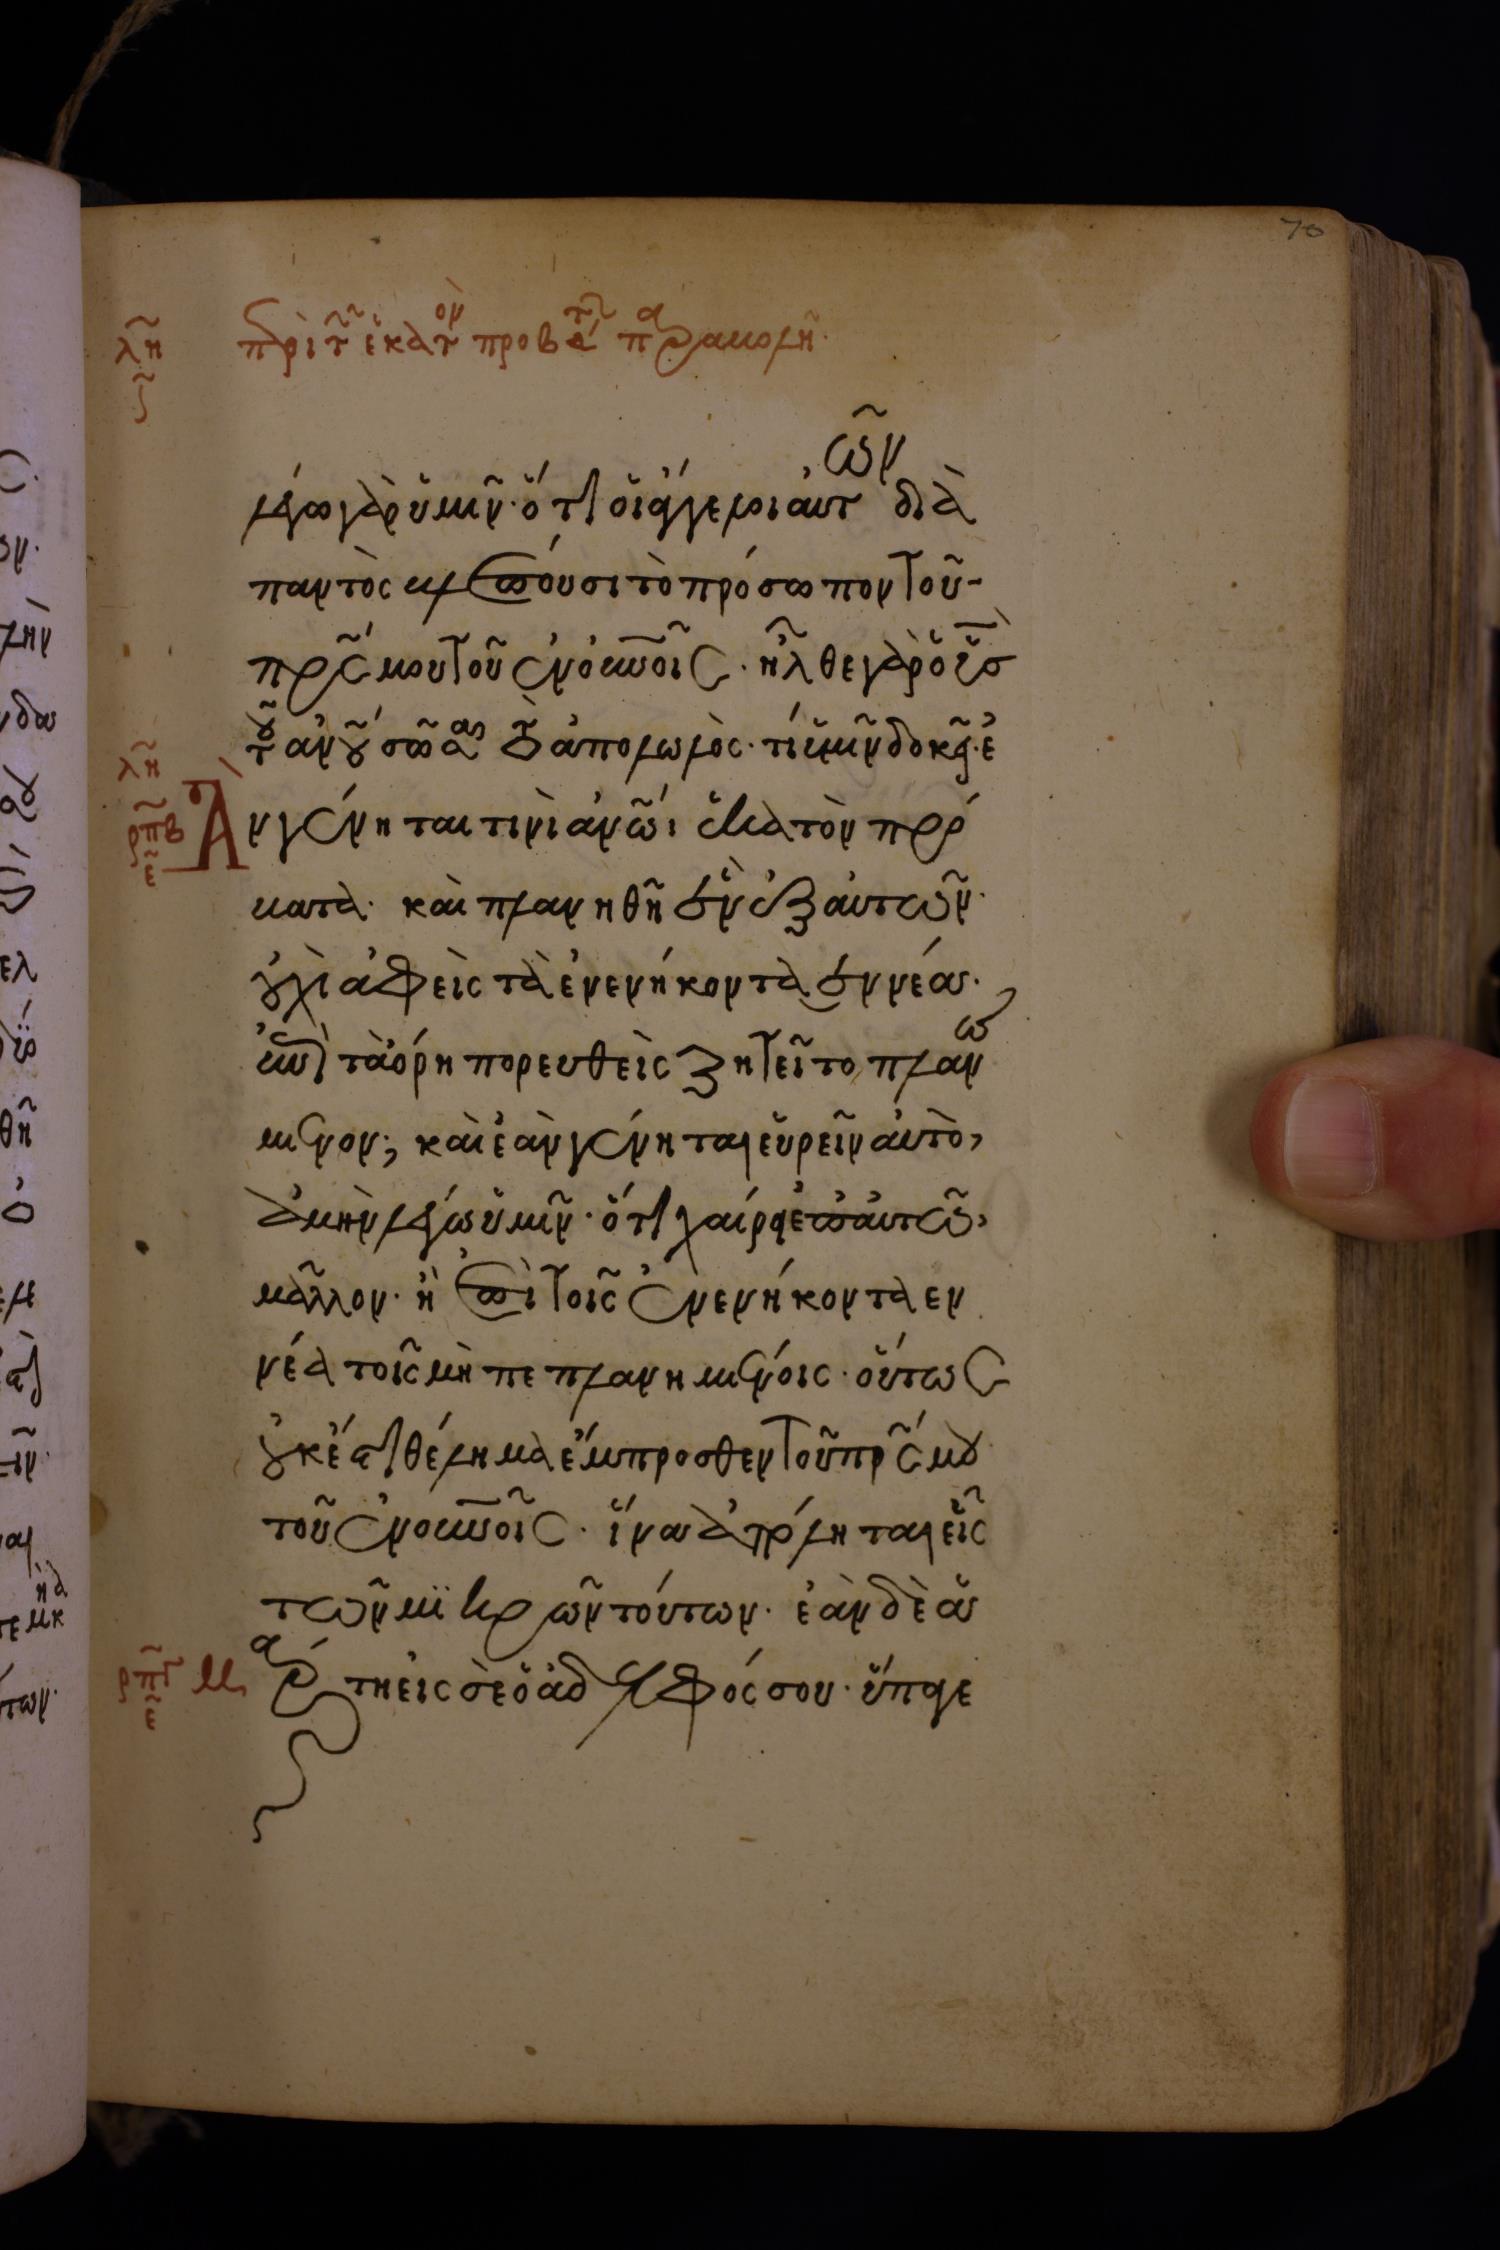 70
λη περὶ τῶν ἑκατὸν προβάτων παραβολή
ς
λέγω γὰρ ὑμῖν· ὅτι οἱ ἄγγελοι αὐτῶν διὰ
παντὸς βλέπουσι τὸ πρόσωπον τοῦ
πρ̅ς μου τοῦ ἐν ο̅υ̅ν̅οις· ἦλθε γὰρ ὁ υ̅ς̅
τοῦ ἀν̅ου̅ σῶσαι τὸ ἀπολωλός· τί ὑμῖν δοκεῖ· ἐ
λη
ρπβ
ε
Ἀν γένηται τινὶ ἀν̅ω̅ι ἑκατὸν πρό
βατα· καὶ πλανηθῆ ἓν ἐξ αὐτῶν·
οὐχὶ ἀφεὶς τὰ ἐνενήκοντα ἐννέα·
ἐπὶ τὰ ὄρη πορευθεὶς ζητεῖ τὸ πλανώ
μενον; καὶ ἐὰν γένηται εὑρεῖν αὐτὸ,
ἀμὴν λέγω ὑμῖν· ὅτι χαίρει ἐπ' αὐτῶ,
μᾶλλον· ἢ ἐπὶ τοῖς ἐνενήκοντα εν
νέα τοῖς μὴ πεπλανημένοις· οὕτως
οὐκ ἔστι θέλημα ἔμπροσθεν τοῦ πρ̅ς μου
τοῦ ἐν ο̅υ̅ν̅οις· ἵνα ἀπόληται εἷς
τῶν μικρῶν τούτων· ἐὰν δὲ ἁ
ρπγ
ε
μαρτη εἰς σὲ ὁ ἀδελφός σου· ὕπαγε